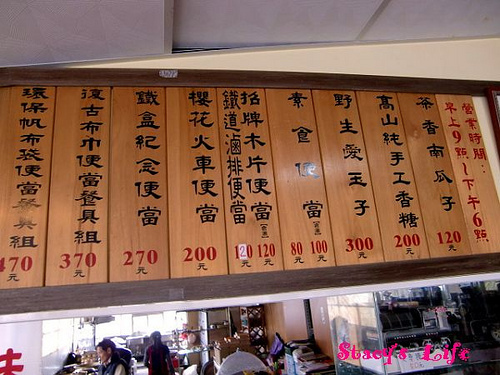 營業時間：
早上9點~下午6點
茶香南瓜子
120元
高山純手工香糖
200元
野生愛玉子
300元
素食便當
80元 100元
招牌木片便當
120元
鐵道滷排便當
120
櫻花火車便當
200元
鐵盒紀念便當
270元
復古布巾便當餐具組
370元
環保帆布袋便當餐具組
470元
Stacy's Life